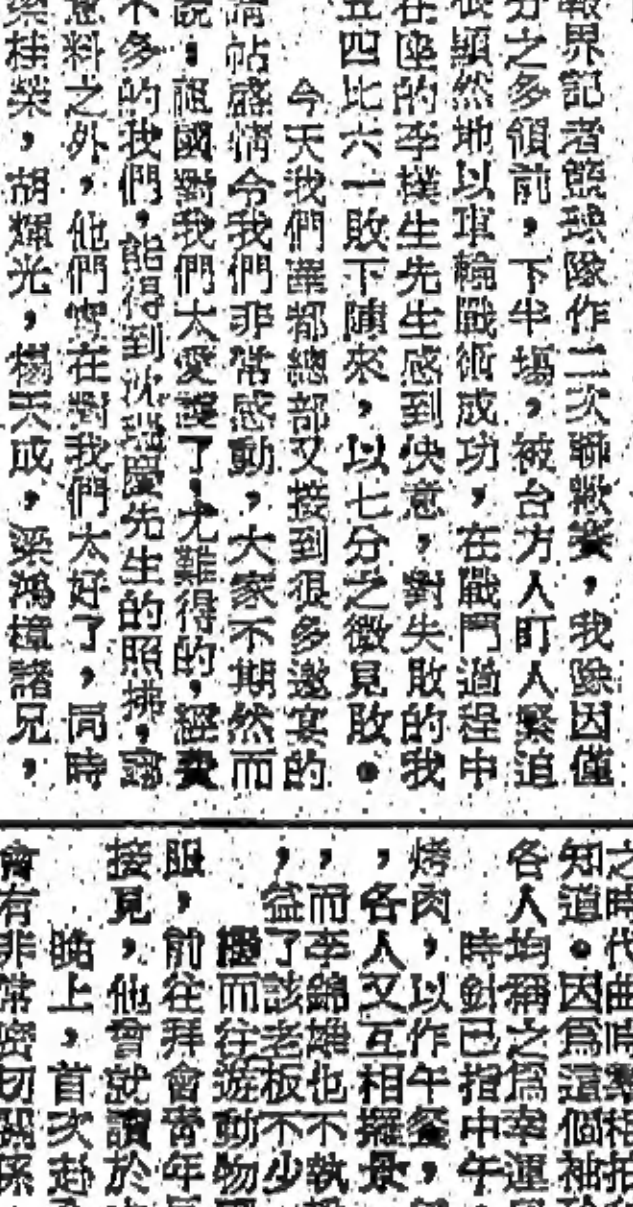 報界記者籃球隊作二次聯歡賽，我隊因僅
分之多領前，下半場，被台方人盯人緊迫
很顯然地以車輪戰術成功，在戰鬥過程中
在座的李樸生先生感到快意，對失敗的我
五四比六一敗下陣來，以七分之微見敗。
今天我們華都總部又接到很多邀宴的
請帖盛情令我們非常感動，大家不期然而
說，祖國對我們太愛護了，尤難得的，經費
不多的我們，能得到沈瑞慶先生的照拂，
意料之外，他們實在對我們太好了，同時
梁桂榮，胡輝光，楊天成，梁鴻樟諸兄，
之時代曲
知道。因爲這個
各人均稱之爲幸運
時針已指中午
烤肉，以作午餐，
，各人又互相攝景，
，而李錦雄也不執
，益了該老板不少
而往遊動物
服，前往拜會青年
接見，他曾就讀於
晚上，首次赴
會有非常密切關係